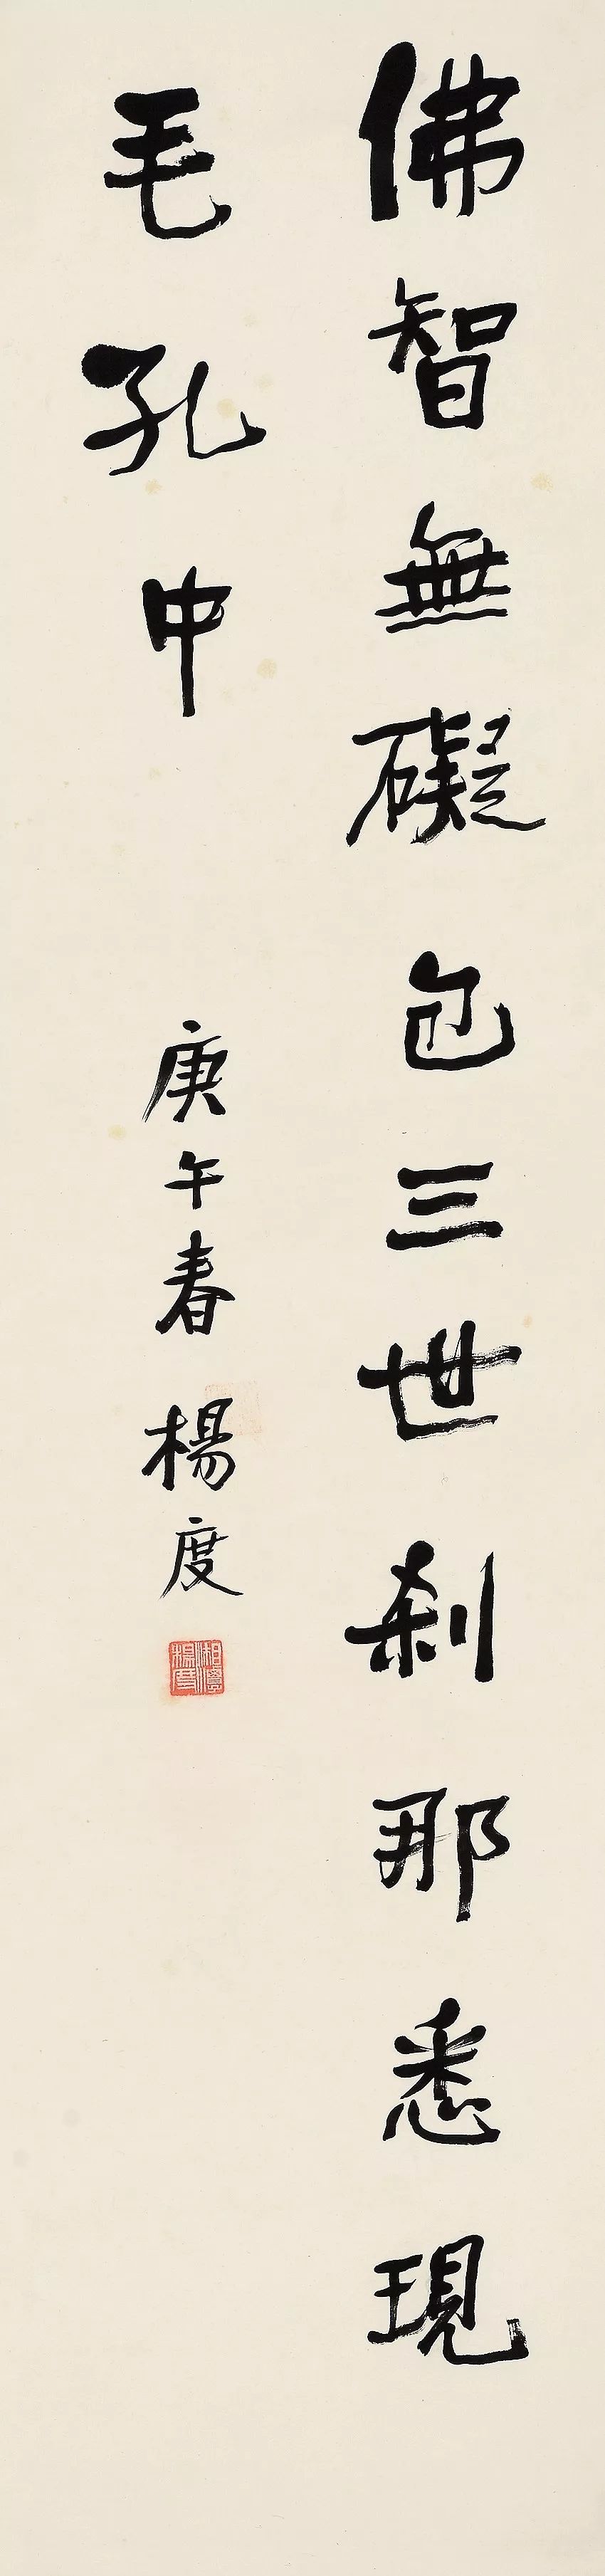 佛智無礙包三世剎那悉現
毛孔中
庚午春 楊度
湘潭
楊度